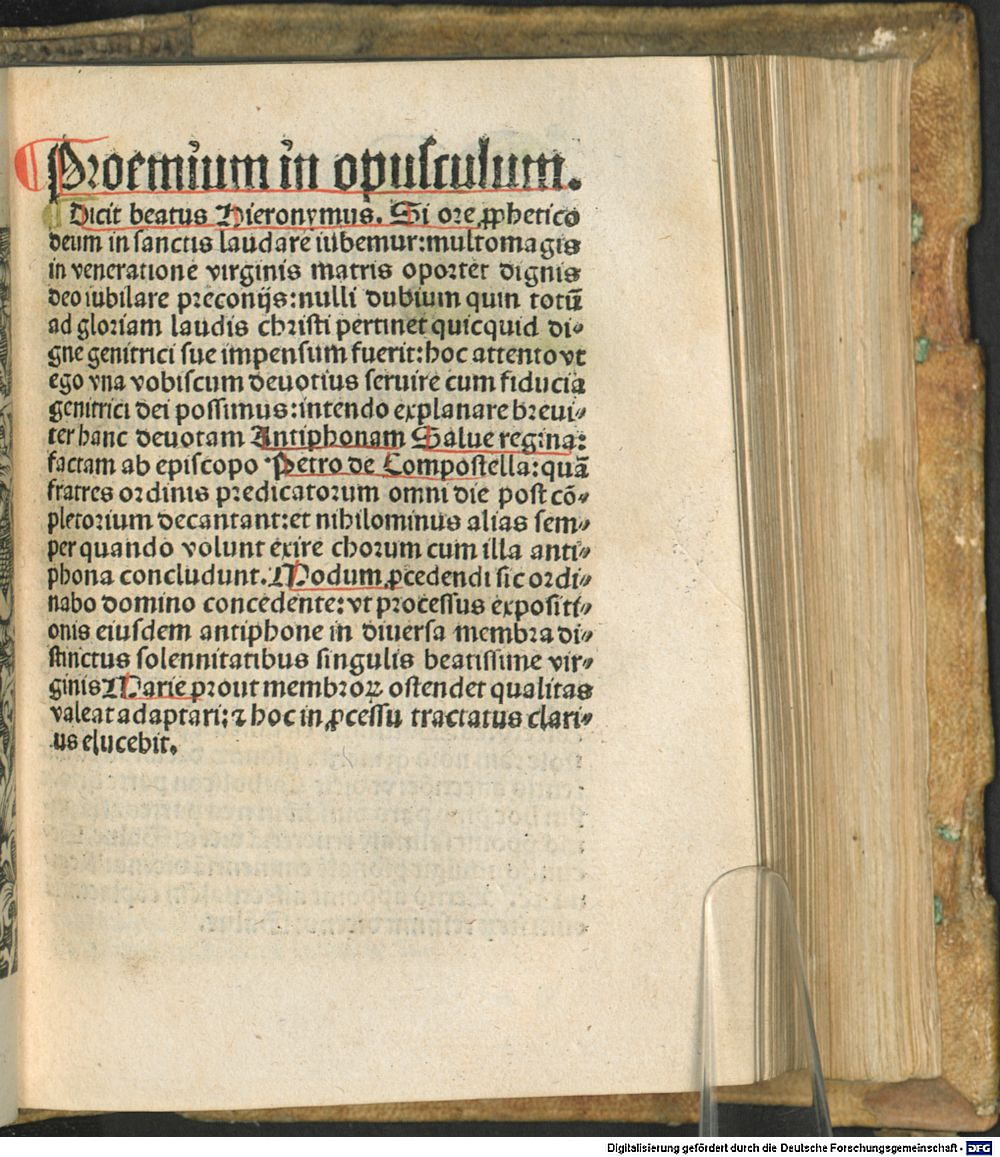 Proemium in opusculum.
Dicit beatus Hieronymus. Si ore ꝓphetico
deum in sanctis laudare iubemur:multomagis
in veneratione virginis matris oportet dignis
deo iubilare preconijs:nulli dubium quin totū
ad gloriam laudis christi pertinet quicquid di⸗
gne genitrici sue impensum fuerit:hoc attento vt
ego vna vobiscum deuotius seruire cum fiducia
genitrici dei possimus:intendo explanare breui⸗
ter hanc deuotam Antiphonam Salue regina:
factam ab episcopo Petro de Compostella:quā
fratres ordinis predicatorum omni die post cō⸗
pletorium decantant:et nihilominus alias sem⸗
per quando volunt exire chorum cum illa anti⸗
phona concludunt. Modum ꝓcedendi sic ordi⸗
nabo domino concedente:vt processus expositi⸗
onis eiusdem antiphone in diuersa membra di⸗
stinctus solennitatibus singulis beatissime vir⸗
ginis Marie prout membroꝝ ostendet qualitas
valeat adaptari:⁊ hoc in ꝓcessu tractatus clari⸗
us elucebit.
Digitalisierung gefördert durch die Deutsche Forschungsgemeinschaft - DFG